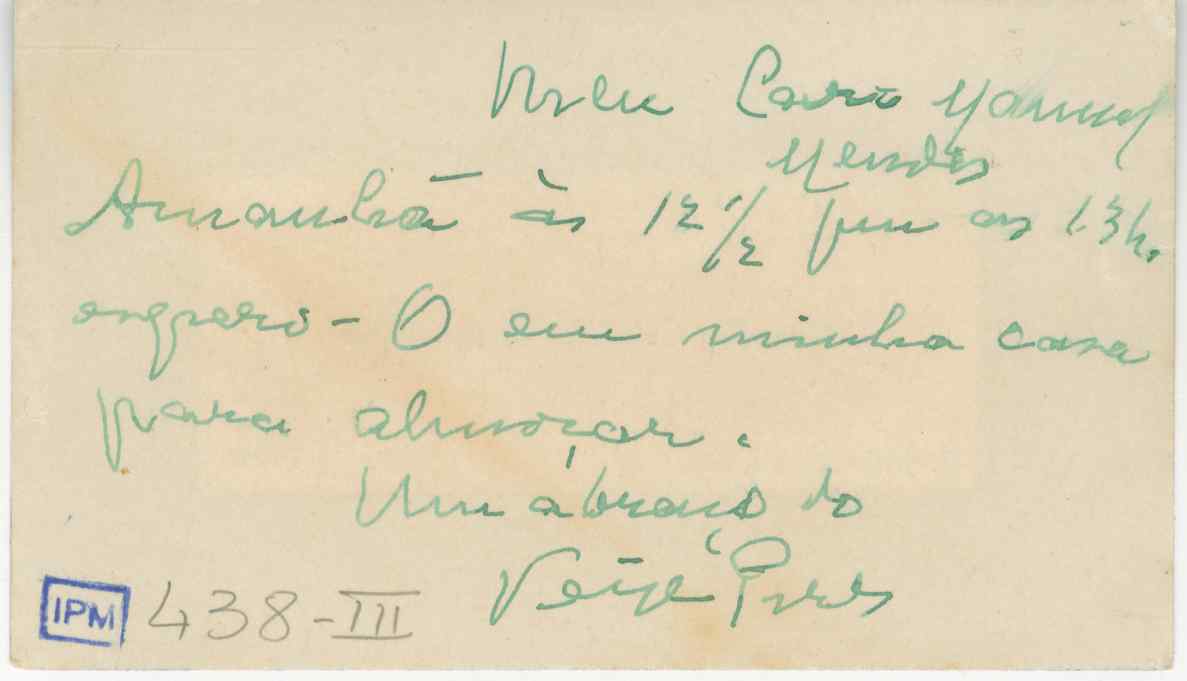 Meu Caro Manuel
Mendes
Amanhã às 12 1/2 para as 13h.
espero-O em minha casa
para almoçar.
Um abraço do
Veiga Pires
IPM 438-III